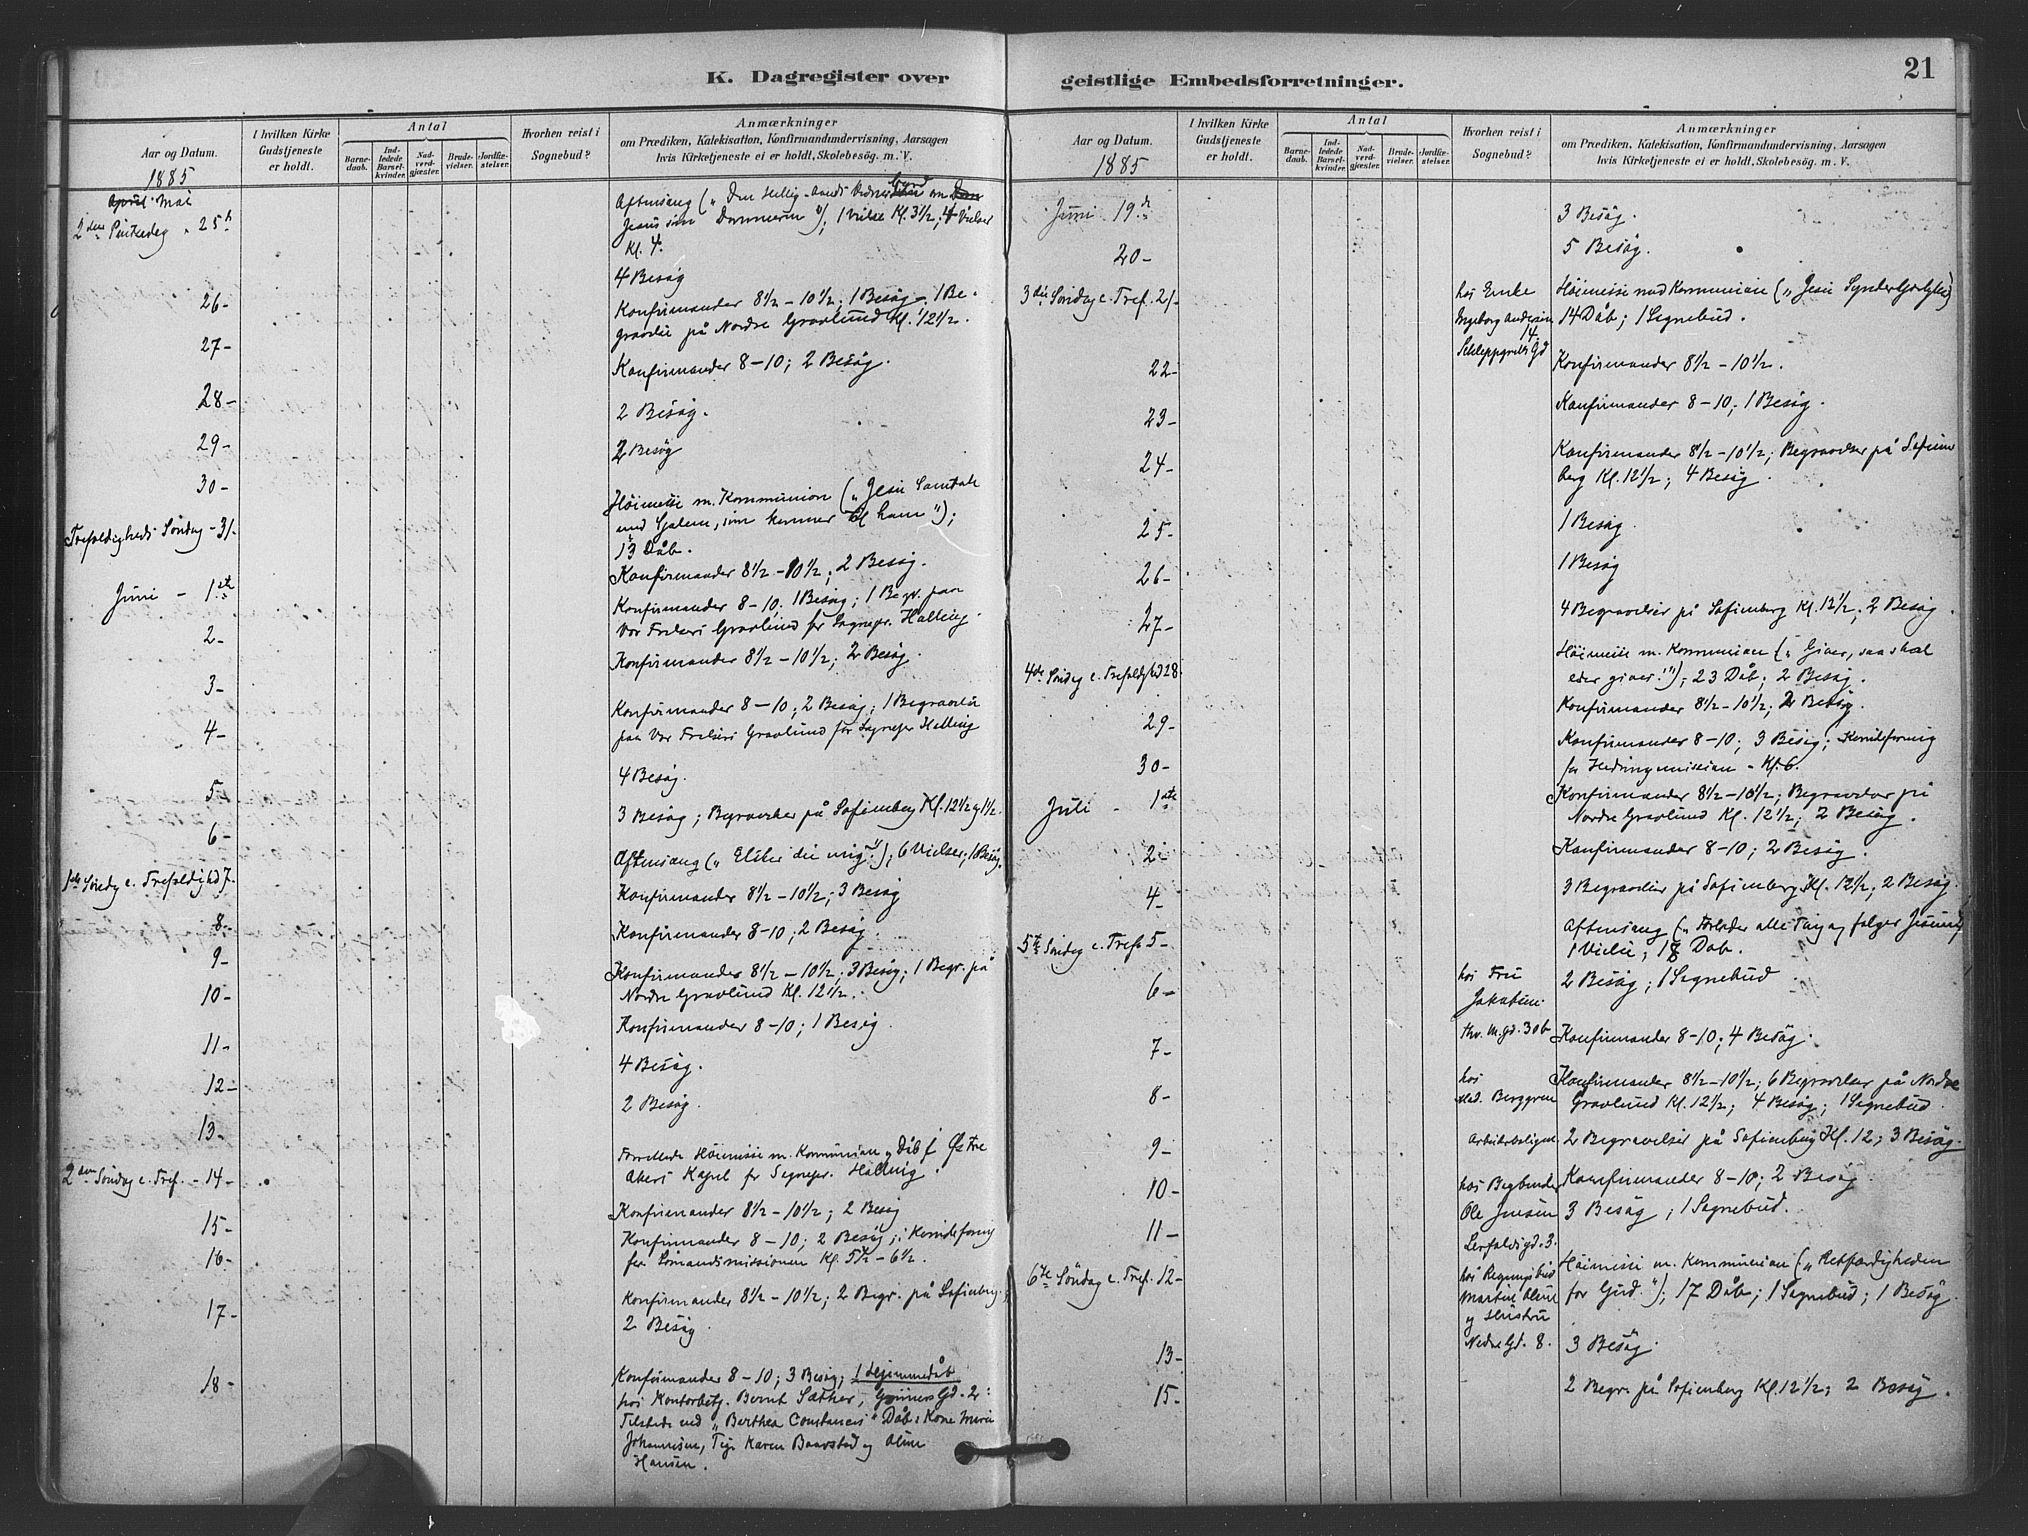 K. Dagregister over geistlige Embedsforretninger.
21
Aar og Datum.
1885
I hvilken Kirke Gudstjeneste er holdt.
Antal
Barnedaab.
Indledede Barselkvinder.
Nadverdgjæster.
Brudevielser.
Jordfæstelser.
Hvorhen reist i Sognebud?
Anmærkninger
om Prædiken, Katekisation, Konfirmandundervisning, Aarsagen
hvis Kirketjeneste ei er holdt, Skolebesøg. m. V.
April Mai
2den Pintsedag " 25de
Aftensang („ Den Hellig-Aands Vidnesbyrd om
Jesus som Dommeren "), 1 Vielse Kl. 3 1/2, 4 Vielser
Kl. 4.
4 Besøg
26-
Konfirmander 8 1/2 - 10 1/2; 1 Besøg - 1 Be-
gravelse på Nordre Gravlund Kl. 12 1/2.
27-
Konfirmander 8-10; 2 Besøg.
28-
2 Besøg.
29-
2 Besøg
30-
Høimesse m. Kommunion („ Jesu Samtale
med som kommer til ham ");
13 Dåb.
Trefoldigheds Søndag - 31.
Konfirmander 8 1/2 - 10 1/2; 2 Besøg.
Juni - 1ste
Konfirmander 8-10; 1 Besøg; 1 Begr. paa
Vor Frelsers Gravlund for Sognepr. Halling.
2-
Konfirmander 8 1/2 - 10 1/2; 2 Besøg.
3-
Konfirmander 8-10; 2 Besøg; 1 Begravelse
paa Vor Frelsers Gravlund for Sognepr Halling
4-
4 Besøg.
5-
3 Besøg; Begravelser på Sofienberg Kl. 12 1/2 og 1 1/2.
6-
Aftensang („ Elsker du mig? "); 6 Vielser; 1 Besøg.
1ste Søndag e. Trefoldighed 7.
Konfirmander 8 1/2 - 10 1/2; 3 Besøg
8-
Konfirmander 8-10; 2 Besøg.
9-
Konfirmander 8 1/2 - 10 1/2; 3 Besøg; 1 Begr. på
Nordre Gravlund Kl. 12 1/2.
10-
Konfirmander 8-10; 1 Besøg.
11-
4 Besøg.
12-
2 Besøg.
13.
Forrettede Høimesse m. Kommunion og Dåb i Østre
Akers Kapel for Sognepr. Halling.
2den Søndag e. Tref. - 14-
Konfirmander 8 1/2 - 10 1/2; 2 Besøg
15-
Konfirmander 8-10; 2 Besøg; Kvindeforening
for Sømandsmissionen Kl. 5 1/2 - 6 1/2.
16-
Konfirmander 8 1/2 - 10 1/2; 2 Begr. på Sofienberg,
2 Besøg.
17-
18-
Konfirmander 8-10; 3 Besøg; 1 Hjemmedåb
hos Kontorbetj. Bernt Sæther, Grüners Gd. 2:
Tilstede ved „ Berthea Constances " Dåb: Kone Marie
Johannesen, Pige Karen Baarstad og Oline
Hansen.
Aar og Datum.
1885
I hvilken Kirke Gudstjeneste er holdt.
Antal
Barnedaab.
Indledede Barselkvinder.
Nadverdgjæster.
Brudevielser.
Jordfæstelser.
Hvorhen reist i Sognebud?
Anmærkninger
om Prædiken, Katekisation, Konfirmandundervisning, Aarsagen
hvis Kirketjeneste ei er holdt, Skolebesøg. m. V.
Juni 19de
3 Besøg.
20-
5 Besøg.
3die Søndag e. Tref. 21-
hos Enke
Ingeborg Andersen
14
Schleppgrells Gd
Høimesse med Kommunion („ Jesu Synderkjærlighed)
14 Dåb; 1 Sognebud.
22-
Konfirmander 8 1/2 - 10 1/2.
23-
Konfirmander 8-10; 1 Besøg.
24-
Konfirmander 8 1/2 - 10 1/2; Begravelse på Sofien
berg Kl. 12 1/2; 4 Besøg.
25-
1 Besøg.
26-
1 Besøg
27-
4 Begravelser på Sofienberg Kl. 12 1/2; 2 Besøg.
4de Søndag e. Trefoldighed 28.
Høimesse m. Kommunion („ Giver, saa skal
eder gives! "); 23 Dåb; 2 Besøg.
29-
Konfirmander 8 1/2 - 10 1/2; 2 Besøg.
30-
Konfirmander 8-10; 3 Besøg; Kvindeforening
for Hedningemissionen - Kl. 6.
Juli - 1ste
Konfirmander 8 1/2 - 10 1/2; Begravelser på
Nordre Gravlund Kl. 12 1/2; 2 Besøg.
2-
Konfirmander 8-10; 2 Besøg.
4-
3 Begravelser på Sofienberg Kl. 12 1/2; 2 Besøg.
5te Søndag e. Tref. 5-
Aftensang („ Forlader alle Ting og følger Jesum")
1 Vielse, Dåb.
6-
hos Fru
Jakobsen
Thv. M. gd. 30 b
2 Besøg; 1 Sognebud
7-
Konfirmander 8-10; 4 Besøg.
8-
hos
Mad. Berggren
Arbeiderboligen
Konfirmander 8 1/2 - 10 1/2; 6 Begravelser på Nordre
Gravlund Kl. 12 1/2; 4 Besøg; 1 Sognebud.
9-
2 Begravelser på Sofienberg Kl. 12; 3 Besøg.
10-
Konfirmander 8-10; 2 Besøg.
11-
hos Bogbinder
Ole Jensen
Lerfaldsgd. 3.
3 Besøg; 1 Sognebud.
6te Søndag e. Tref. 12-
hos
Martin Olsen
og Hustru
Nedre Gd. 8.
Høimesse m. Kommunion („ Retfærdigheden
for Gud. "); 17 Dåb; 1 Sognebud; 1 Besøg.
13-
3 Besøg.
15-
2 Begr. på Sofienberg Kl. 12 1/2; 2 Besøg.